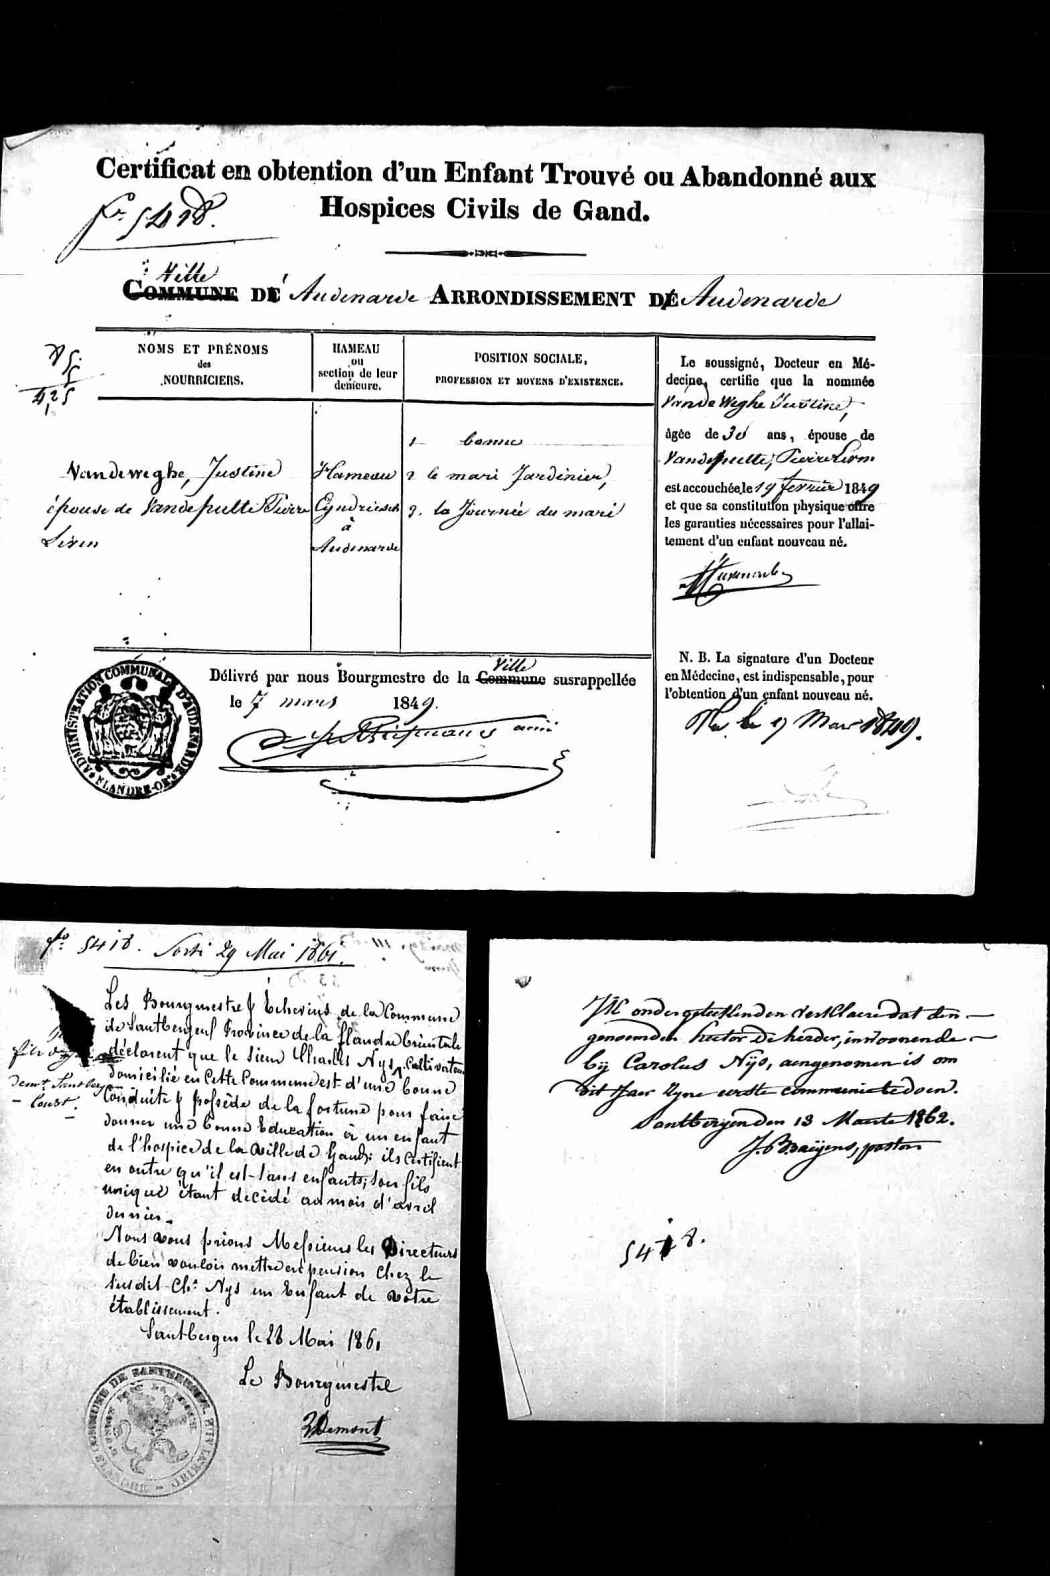 Certificat en obtention d'un Enfant Trouvé ou Abandonné aux
Hospices Civils de Gand.
fo. 5418.
Ville
COMMUNE DE Audenarde ARRONDISSEMENT DE Audenarde
NOMS ET PRÉNOMS
des
NOURRICIERS.
HAMEAU
ou
section de leur
demeure.
POSITION SOCIALE,
PROFESSION ET MOYENS D'EXISTENCE.
Vandeweghe, Justine
épouse de Vandeputte Pierre
Livin
Hameau
à
Audenarde
1 bonne
2 le mari Jardinier,
3. la Journée du mari
Le soussigné, Docteur en Mé-
decine, certifie que la nommée
Van de Weghe Justine,
âgée de 30 ans, épouse de
Vandeputte, Pierre Livin
est accouchée le 19 fevrier 1849
et que sa constitution physique offre
les garanties nécessaires pour l'allai-
tement d'un enfant nouveau né.
N. B. La signature d'un Docteur
en Médecine, est indispensable, pour
l'obtention d'un enfant nouveau né.
9 Mars 1849.
Délivré par nous Bourgmestre de la Commune susrappellée
Ville
le 7 mars 1849.
ADMINISTRATION COMMUNALE D'AUDENARDE
FLANDRE-OR
fo. 5418. Sorti 29 Mai 1861.
Les Bourgmestre & Echevins de la Commune
de Santbergen Province de la flandre Orientale
déclarent que le sieur Charles Nys, Cultivateur
domicilié en cette Commune est d'une bonne
Conduite & possède de la fortune pour faire
donner une bonne Education à un enfant
de l'hospice de la ville de Gand: ils certifient
en outre qu'il est sans enfants, son fils
unique étant décédé au mois d'avril
dernier.
Nous vous prions Messieurs les Directeurs
de bien vouloir mettre en pension chez le
susdit Chs Nys un Enfant de votre
établissement.
Santbergen le 28 Mai 1861
Le Bourgmestre
Demont
COMMUNE DE SANTBERGEN
Ik ondergeteekenden verklaere dat den
genoemden Hector De herder, inwonende
by Carolus Nijs, aengenomen is om
dit Jaer zyne eerste communie te doen.
Santbergen den 13 Maerte 1862.
J. B. Baeyens, pastor
5418.